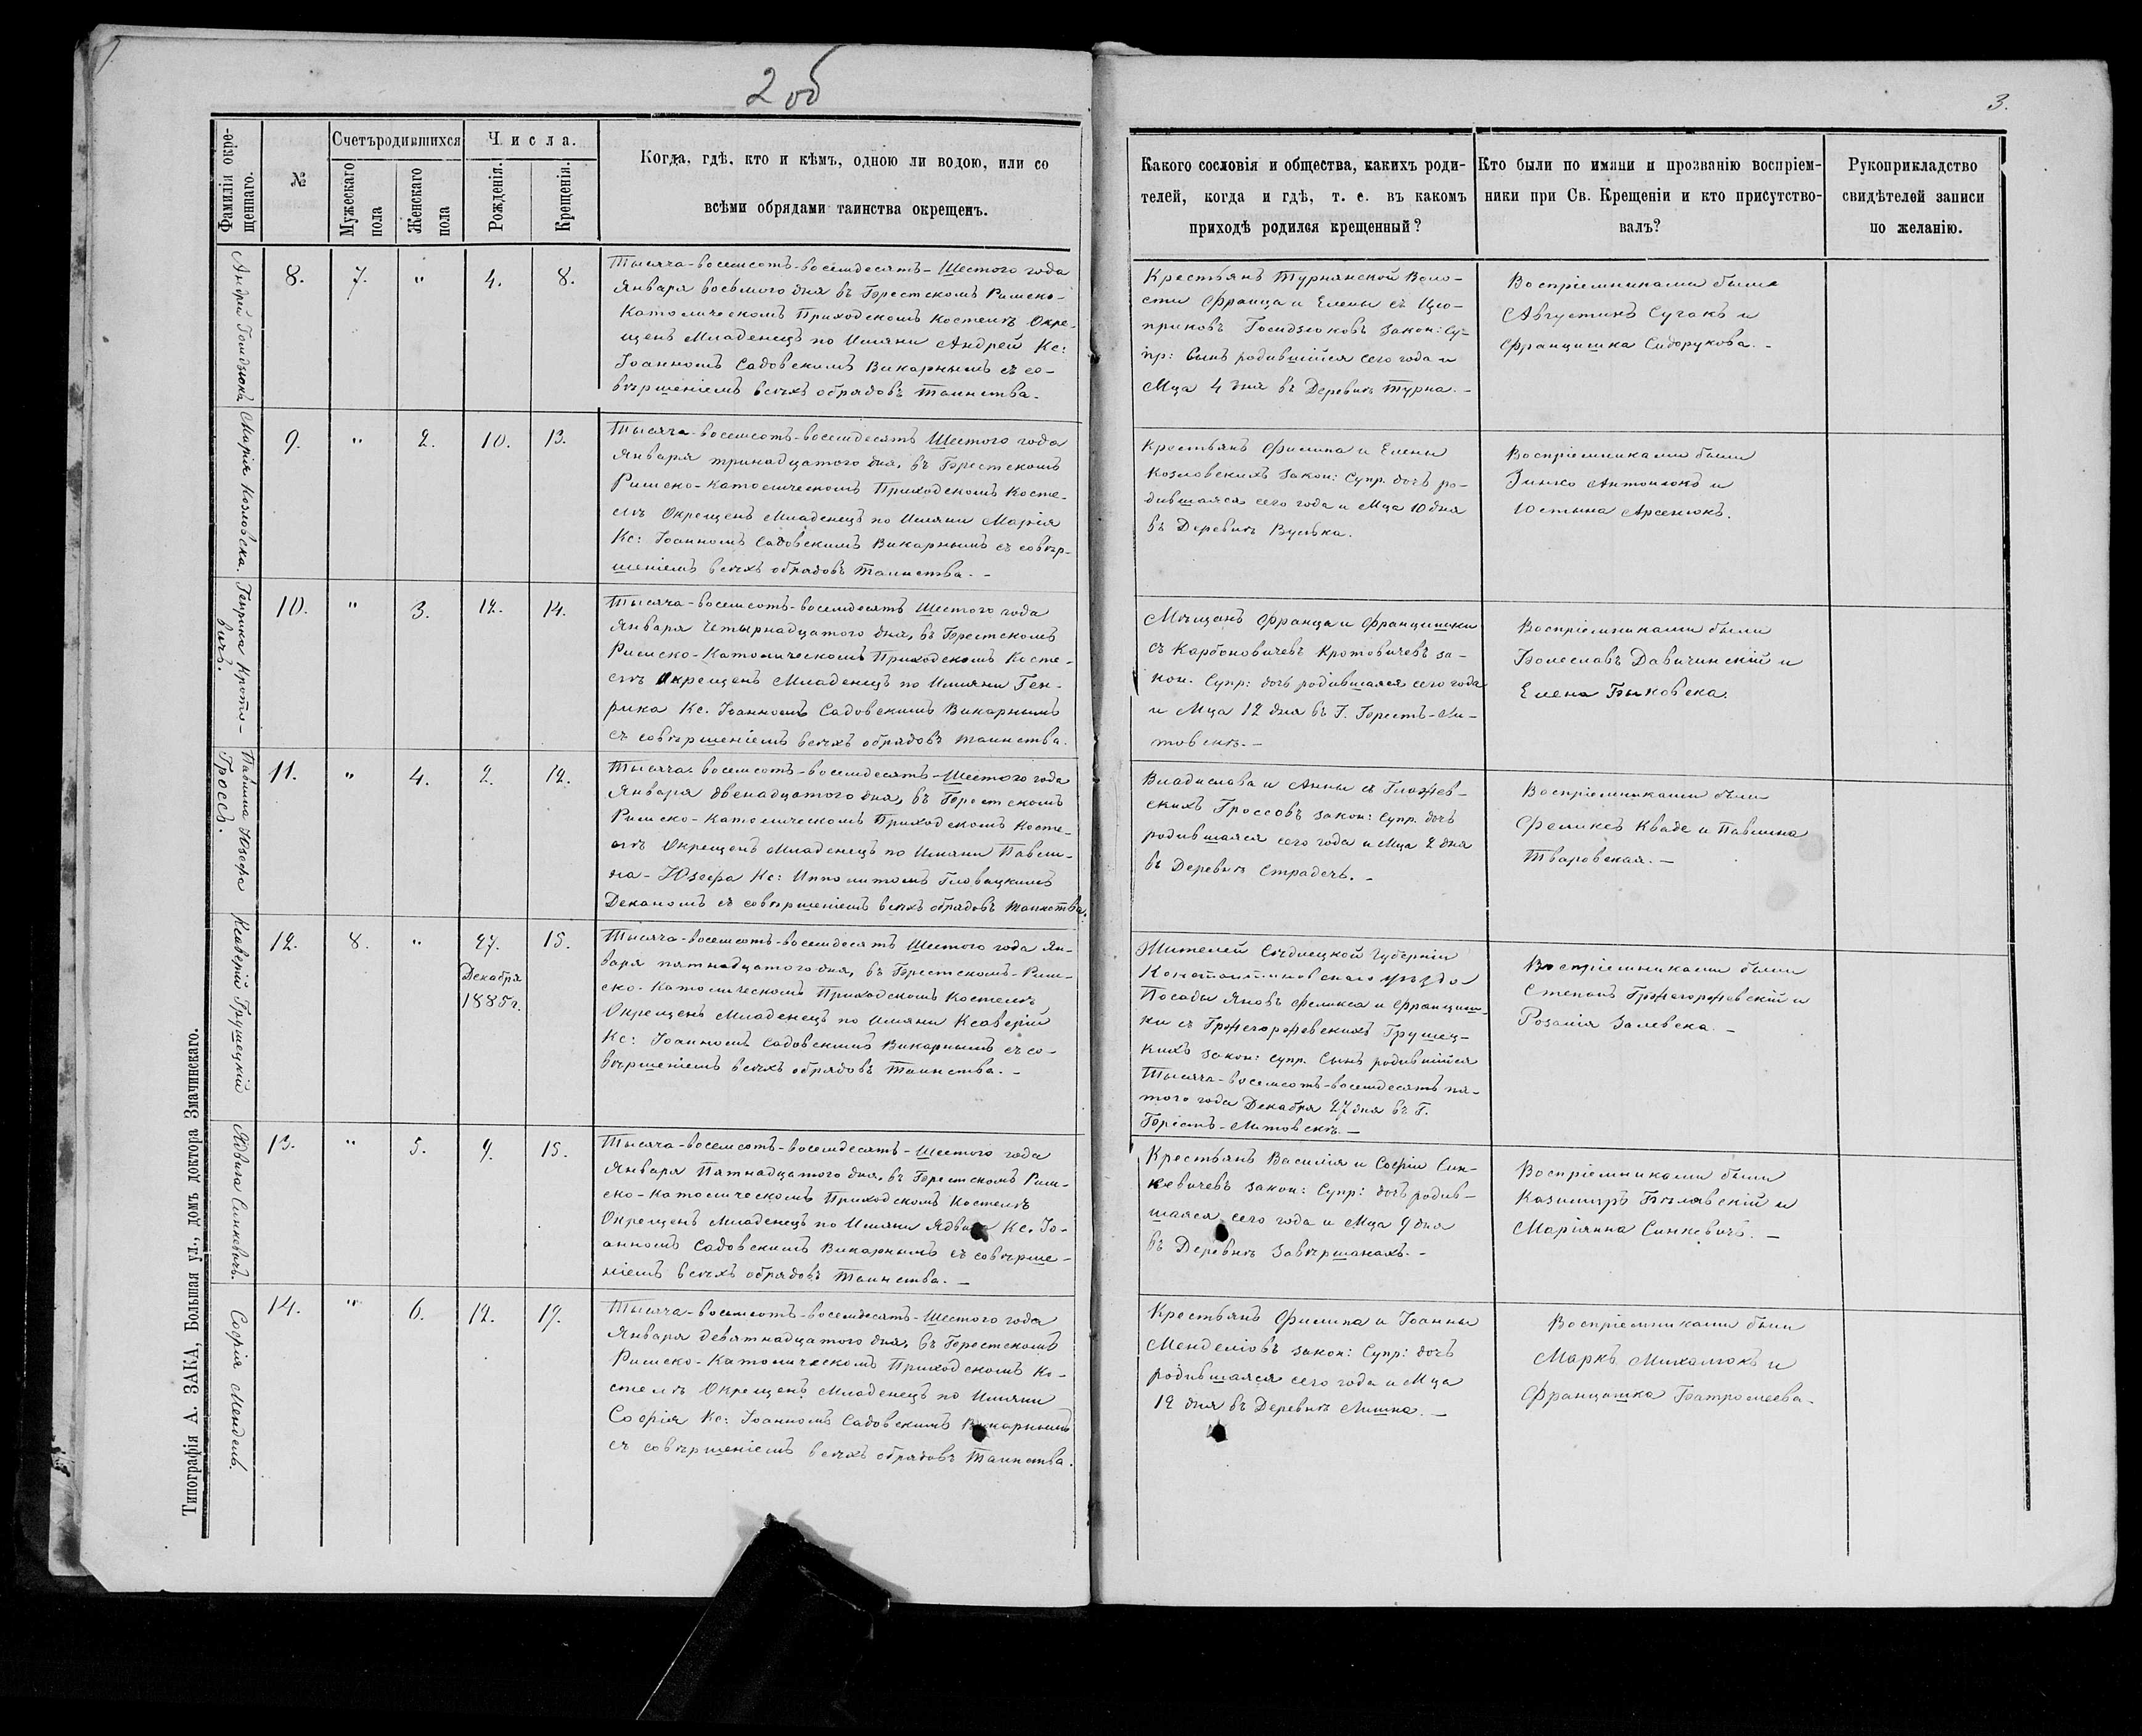 2 об
3.
Фамилія окре-
щеннаго.
№
Счетъ родившихся
Мужескаго
пола
Женскаго
пола
Числа.
Рожденія.
Крещенія.
Когда, гдѣ, кто и кѣмъ, одною ли водою, или со
всѣми обрядами таинства окрещенъ.
Какого сословія и общества, какихъ роди-
телей, когда и гдѣ, т. е. въ какомъ
приходѣ родился крещенный?
Кто были по имяни и прозванію воспріем-
ники при Св. Крещеніи и кто присутство-
валъ?
Рукоприкладство
свидѣтелей записи
по желанію.
Андрей Гомдзюкъ
8. 7. " 4. 8.
Тысяча-восемсотъ-восемдесятъ-Шестого года
Января восьмого дня въ Брестскомъ Римско-
Католическомъ Приходскомъ Костелѣ Окре-
щенъ Младенецъ по Имяни Андрей Кс:
Іоанномъ Садовскимъ Викарнымъ съ со-
вѣршеніемъ всѣхъ обрядовъ Таинства.
Крестьянъ Турнянской Воло-
сти Франца и Елены съ Цю-
приковъ Гомдзюковъ закон: Су-
пр: Сынъ родившійся сего года и
Мца 4 дня въ Деревнѣ Турна. -
Воспріемниками были
Августинъ Сучакъ и
Францишка Сидорукова. -
Марія Козловска.
9. " 2. 10. 13.
Тысяча-восемсотъ-восемдесятъ Шестого года
Января тринадцатого дня, въ Брестскомъ
Римско-Католическомъ Приходскомъ Косте-
лѣ Окрещенъ Младенецъ по Имяни Марія
Кс: Іоанномъ Садовскимъ Викарнымъ съ совѣр-
шеніемъ всѣхъ обрядовъ Таинства. -
Крестьянъ Филипа и Елены
Козловскихъ Закон: Супр. дочь ро-
дившаяся сего года и Мца 10 дня
въ Деревнѣ Вулька.
Воспріемниками были
Зинко Антонюкъ и
Юстына Арсенюкъ.
Генрика Крото-
вичъ.
10. " 3. 12. 14.
Тысяча-восемсотъ-восемдесятъ Шестого года
Января Четырнадцатого дня, въ Брестскомъ
Римско-Католическомъ Приходскомъ Косте-
лѣ Окрещенъ Младенецъ по Имяни Ген-
рика Кс. Іоанномъ Садовскимъ Викарнымъ
съ совѣршеніемъ всѣхъ обрядовъ таинства.
Мѣщанъ Франца и Францишки
съ Карбоновичевъ Кротовичевъ за-
кон. Супр: дочь родившаяся сего года
и Мца 12 дня въ Г. Брестъ-Ли-
товскѣ. -
Воспріемниками были
Болеславъ Давичинскій и
Елена Быковска.
Павлина Юзефа
Гроссъ.
11. " 4. 2. 12.
Тысяча-восемсотъ-восемдесятъ-Шестого года
Января двенадцатого дня, въ Брестскомъ
Римско-Католическомъ Приходскомъ Косте-
лѣ Окрещенъ Младенецъ по Имяни Павли-
на-Юзефа Кс: Ипполитомъ Гловацкимъ
Деканомъ съ совѣршеніемъ всѣхъ обрядовъ таинства.
Владислава и Анны съ Гложев-
скихъ Гроссовъ закон: Супр. дочь
родившаяся сего года и Мца 2 дня
въ Деревнѣ Страдечь. -
Воспріемниками были
Феликсъ Кваде и Павлина
Тваровская. -
Ксаверій Грушецкій
12. 8. " 27. 15.
Декабря
1885 г.
Тысяча-восемсотъ-восемдесятъ Шестого года Ян-
варя пятнадцатого дня, въ Брестскомъ-Рим-
ско-Католическомъ Приходскомъ Костелѣ
Окрещенъ Младенецъ по Имяни Ксаверій
Кс: Іоанномъ Садовскимъ Викарнымъ съ со-
вѣршеніемъ всѣхъ обрядовъ Таинства. -
Жителей Сѣдлецкой Губерніи
Константиновскаго уѣзда
Посады Яновъ Феликса и Францишъ-
ки съ Гржегоржевскихъ Грушец-
кихъ закон: супр. Сынъ родившійся
Тысяча-восемсотъ-восемдесятъ пя-
того года Декабря 27 дня въ Г.
Брестъ-Литовскѣ. -
Воспріемниками были
Степанъ Гржегоржевскій и
Розалія Залевска. -
Ядвига Синкевичъ.
13. " 5. 9. 15.
Тысяча-восемсотъ-восемдесятъ-Шестого года
Января Пятнадцатого дня, въ Брестскомъ Рим-
ско-Католическомъ Приходскомъ Костелѣ
Окрещенъ Младенецъ по Имяни Ядвига Кс. Іо-
анномъ Садовскимъ Викарнымъ съ совѣрше-
ніемъ всѣхъ обрядовъ Таинства. -
Крестьянъ Василія и Софіи Син-
кевичевъ закон: Супр: дочь родив-
шаяся сего года и Мца 9 дня
въ Деревнѣ Завѣршанахъ. -
Воспріемниками были
Казимиръ Бѣлявскій и
Маріянна Синкевичъ. -
Софія Мендель.
14. " 6. 12. 19.
Тысяча-восемсотъ-восемдесятъ-Шестого года
Января девятнадцатого дня, въ Брестскомъ
Римско-Католическомъ Приходскомъ Ко-
стелѣ Окрещенъ Младенецъ по Имяни
Софія Кс: Іоанномъ Садовскимъ Викарнымъ
съ совѣршеніемъ всѣхъ обрядовъ Таинства.
Крестьянъ Филипа и Іоанны
Менделіовъ закон: Супр: дочь
родившаяся сего года и Мца
12 дня въ Деревнѣ Лишна. -
Воспріемниками были
Маркъ Михалюкъ и
Францишка Батромеева.
Типографія А. ЗАКА, Большая ул., домъ доктора Значинскаго.